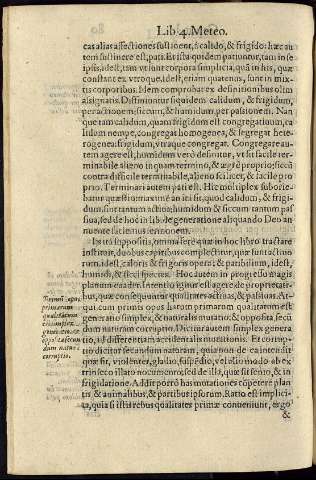 Lib. 4. Meteo.
cas alias affectiones sustinent, à calido, & frigido: hæc au
tem sustinere est, pati. Et ista quidem patiuntur, tam in se
ipsis, idest, tam ut sunt corpora simplicia, quã in his, quæ
constant ex utroque, idest, etiam quatenus, sunt in mix-
tis corporibus. Idem comprobat ex definitionibus olim
assignatis. Distiniuntur siquidem calidum, & frigidum,
per actionem: siccum, & humidum, per passionem. Nam
que tam calidum, quam frigidum est congregatiuum, ca
lidum nempe, congregat homogenea, & segregat hete-
rogenea: frigidum, utraque congregat. Congregare au-
tem agere est, humidum verò definitur, ut sit facile ter-
minabile alieno in quam termino, & ægrè proprio: siccũ
contra difficile terminabile, alieno scilicet, & facile pro
prio. Terminari autem pati est. Hic multiplex suborie-
batur quæstio: maximè an iti sit; quod calidum, & frigi-
dum, sint tantum actiua; humidum & siccum tantum pas
siua, sed de hoc in lib. de generatione aliquando Deo an
nuente facturus sermonem.
Istis ita suppositis, omnia ferè quæ in hoc libro tractare
instituit, duobus capitibus complectitur, quæ sunt actiuo
rum, idest, caloris & frigoris operi; & patibilium, idest,
humidi, & sicci species. Hoc autem in progressu magis
planum euadet. Intentio igitur est agere de proprietati-
bus, quæ consequuntur qualitates actiuas, & passiuas. At-
qui cum primis opus istarum primarum qualitatum est
generatio simplex, & naturalis mutatio, & opposita, secũ
dum naturam corruptio. Dicitur autem simplex genera
tio, ad differentiam accidentalis mutationis. Et corrup-
tio dicitur secundum naturam, quia non de ea intendit
quæ sit, violenter, gladio, suspendio, vel alio modo ab ex
trinseco illato documento; sed de illa, quæ sit senio, & in
frigidatione. Addit porrò has mutationes cõpetere plan
tis & animalibus, & partibus ipsorum. Ratio est implici-
ta, quia si istis rebus qualitates primæ conueniunt, ergo
&
primarum
qualitatum
est simplex
generatio &
opposita secun
dum naturã
corruptio.